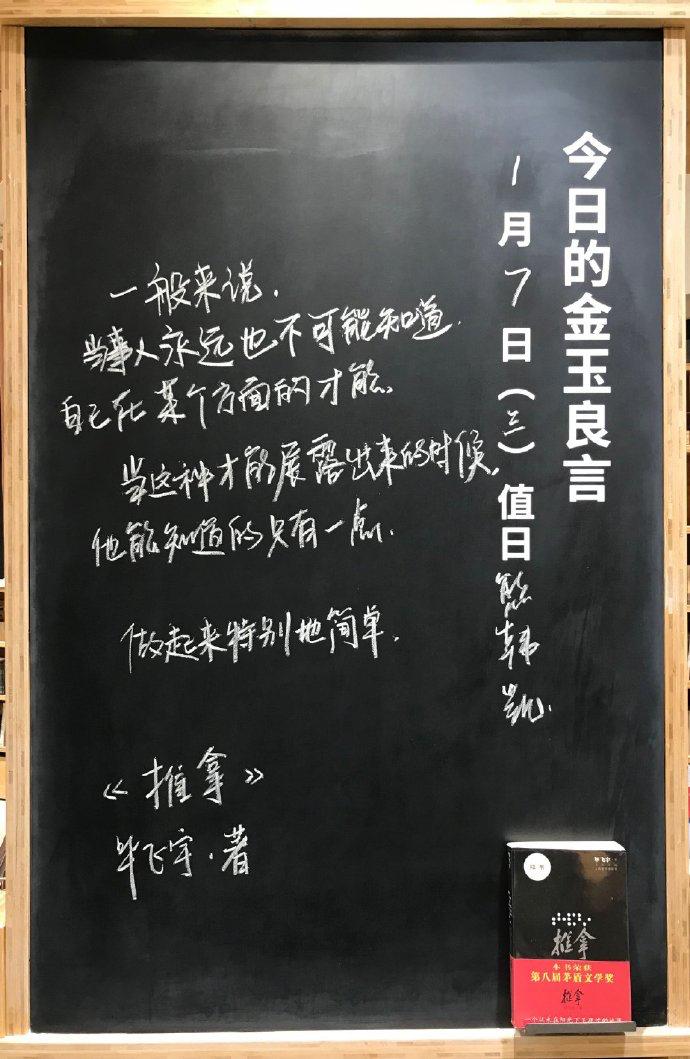 今日的金玉良言
1月7日(三)值日熊韩凯.
一般来说.
当事人永远也不可能知道.
自己在某个方面的才能.
当这种才能展露出来的时候,
他能知道的只有一点.
做起来特别地简单.
《推拿》
毕飞宇·著
毕飞宇
推拿
本书荣获
第八届茅盾文学奖
推拿